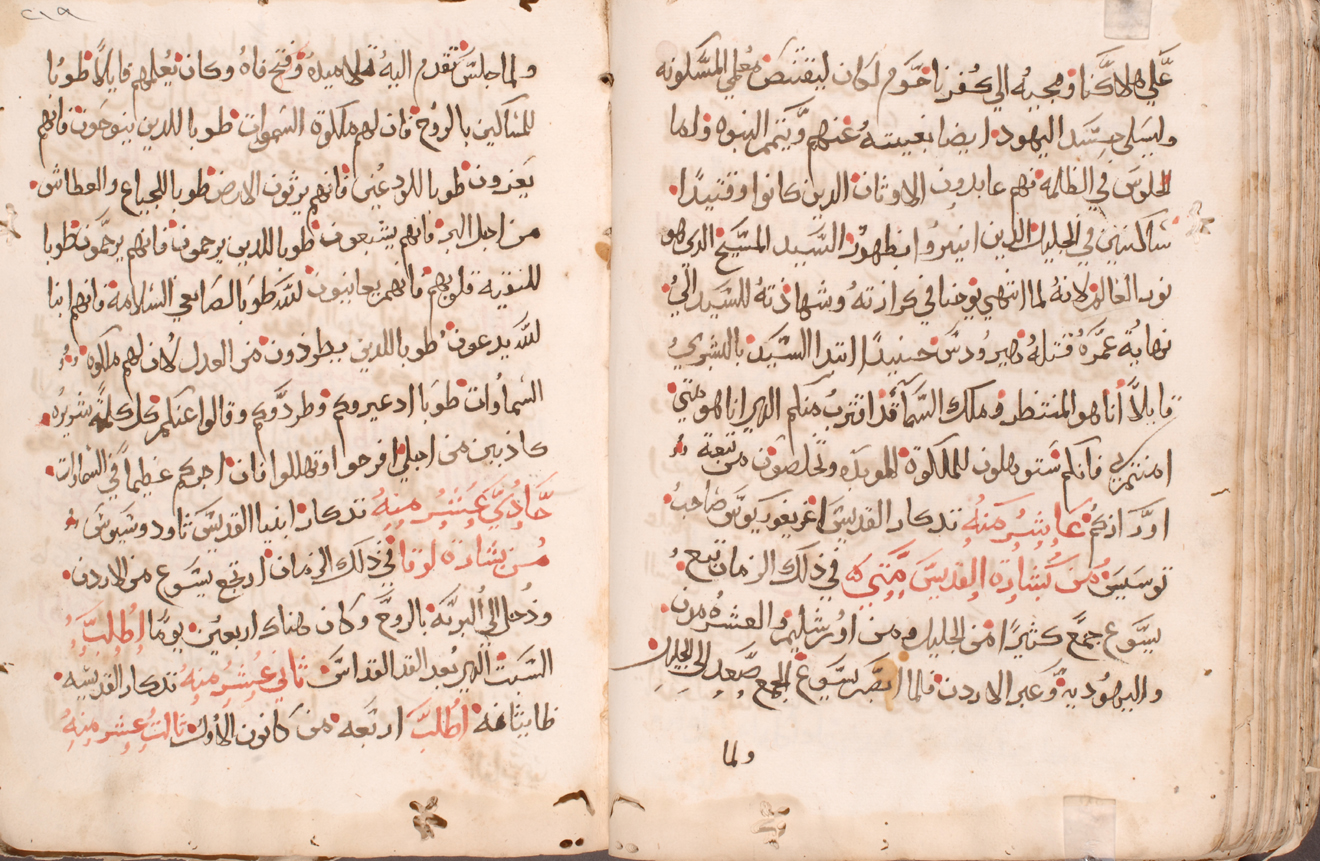 علي هلاكنا ومجيه الي كفرناحوم لكان ليقتنص معلمي المسكونه
وليبلي حسد اليهود ايضا بغيبته عنهم ويتمم النبوه ولما
الجلوس في الظلمه فهم عابدون الاوثان الذين كانوا وقتيدا
ساكنين في الجليل الذين انيروا بظهور السيد المسيح الدي هو
نور العالم لانه لما انتهي يوحنا في كرازته وشهادته للسيد الي
نهاية عمره قتله هيرودس حينيدا ابتدا السيد بالبشري
قايلا انا هو المنتظر وملك السما قد اقترب منكم الدي انا هو متي
امنتم بي فانكم ستوهلون للملكوة الموبده وتخلصون من تبعة
اوزاركم عاشر منه تدكار القديس اغريغوريوس صاحب
توسيس من بشارة القديس متي في ذلك الزمان تبع
يسوع جمع كثيرا من الجليل ومن اورشليم والعشر مدن
واليهودية وعبر الاردن فلما ابصر يسوع الجمع صعد الي الجبل
ولما
٢١٩
ولما جلس تقدم اليه تلاميده وفتح فاه وكان يعلمهم قايلا طوبا
للمساكين بالروح فان لهم ملكوة السموات طوبا للدين ينوحون فانهم
يعزون طوبا للودعين فانهم يرثون الارض طوبا للجياع والعطاش
من اجل البر فانهم يشبعون طوبا للدين يرحمون فانهم يرحمون طوبا
للنقيه قلوبهم فانهم يعاينون لله طوبا لصانعي السلامة فانهم ابنا
لله يدعون طوبا للدين يطردون من العدل لان لهم ملكوه
السماوات طوبا اد عيروكم وطردوكم وقالوا عنكم كل كلمة شريره
كاذبين من اجلي افرحوا وتهللوا فان اجركم عظيما في السماوات
حادي عشر منه تدكار ابينا القديس تاودوسيوس
من بشارة لوقا في ذلك الزمان ارتجع يسوع من الاردن
ودخل الي البريه بالروح وكان هناك اربعين يوما اطلب
السبت الدي بعد القداس ثاني عشر منه تدكار القديسه
طاتيانه اطلب اربعه من كانون الاول ثالث عشر منه